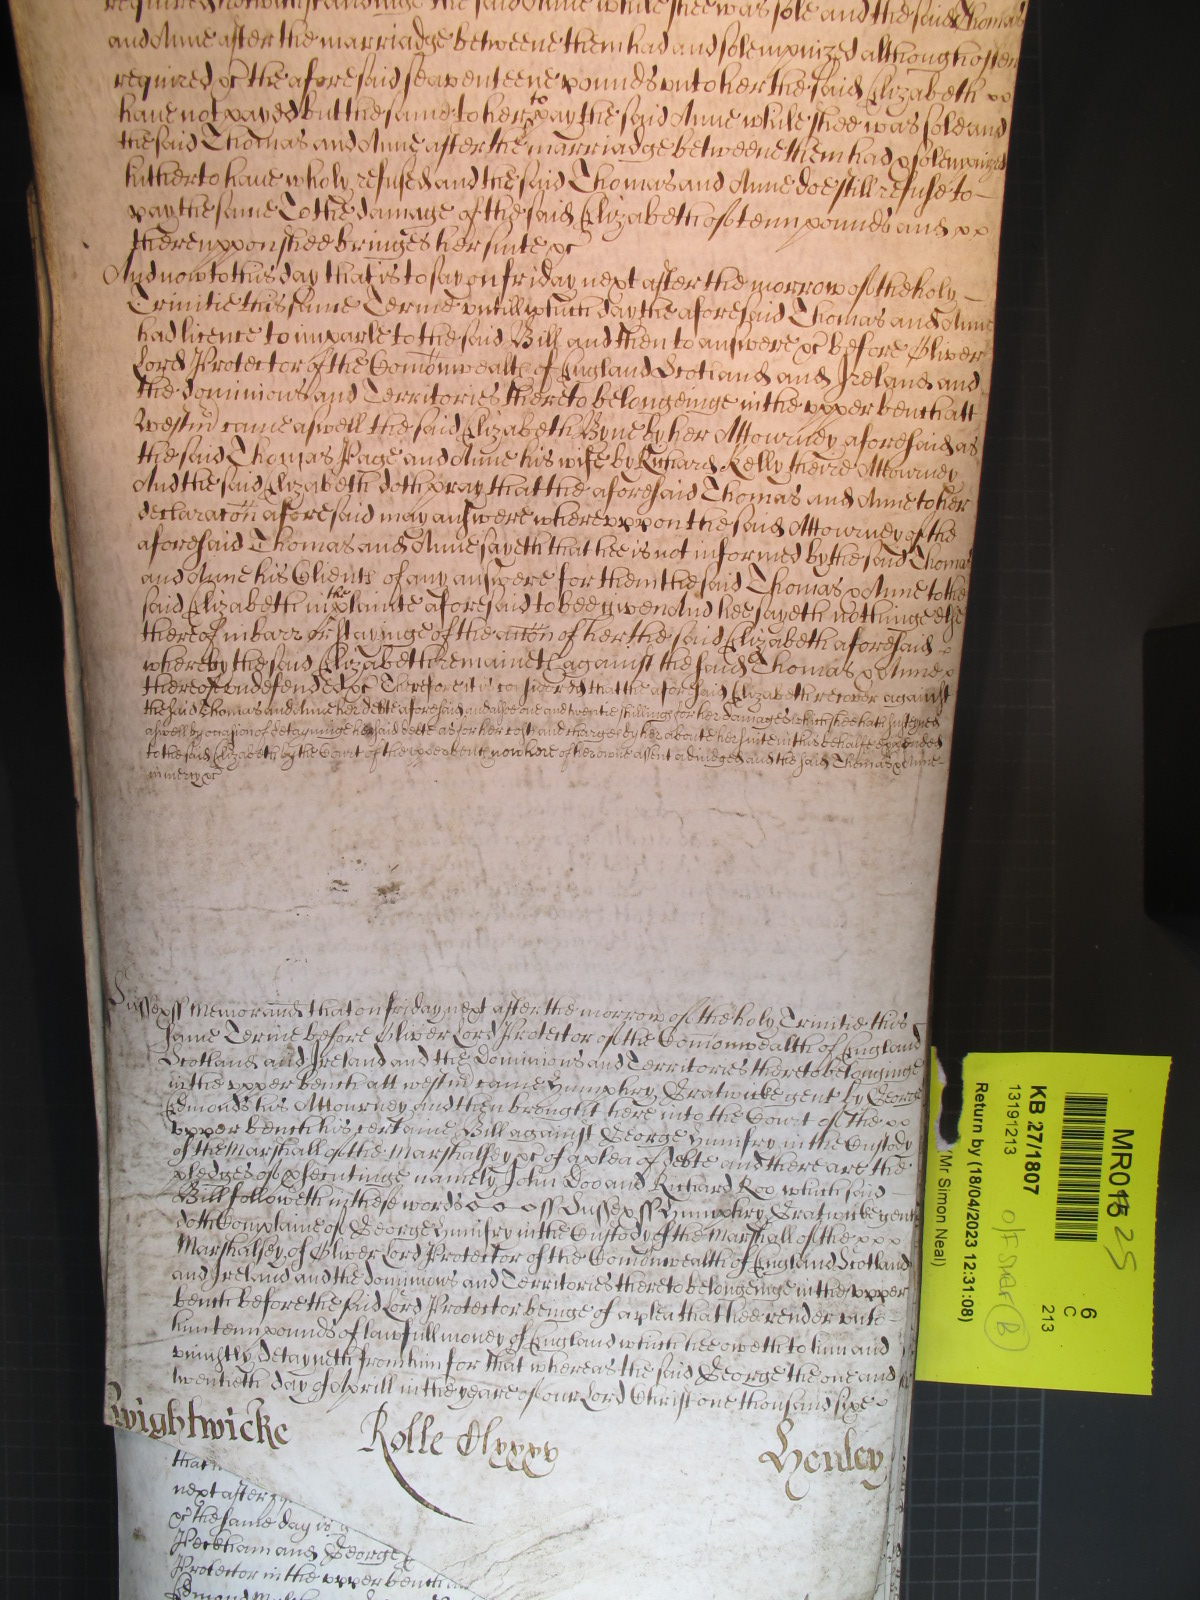 required notwithstandinge the said Anne while shee was sole and the said Thomas
and Anne after the marriadge betweene them had and solempnized although often
required &c the aforesaid seaventeene pounds unto her the said Elizabeth
have not payed but the same to her to pay the said Anne while shee was sole and
the said Thomas and Anne after the marriadge betweene them had & solempnized
hitherto have wholy refused and the said Thomas and Anne doe still refuse to
pay the same To the damage of the said Elizabeth of tenn pounds and
thereuppon shee bringes her suite &c
And now to this day that is to say on friday next after the morrow of the holy
Trinitie this same Terme untill which day the aforesaid Thomas and Anne
had licence to imparle to the said Bill and then to answere &c before Oliver
Lord Protector of the Comonwealth of England Scotland and Ireland and
the dominions and Territories thereto belongeinge in the upper bench att
Westm came aswell the said Elizabeth Byne by her Attourney aforesaid as
the said Thomas Page and Anne his wife by Richard Kelly theire Attourney
And the said Elizabeth doth pray that the aforesaid Thomas and Anne to her
declaracon aforesaid may answere whereuppon the said Attourney of the
aforesaid Thomas and Anne sayeth that hee is not informed by the said Thomas
and Anne his Clients of any answere for them the said Thomas & Anne to the
said Elizabeth in the plainte aforesaid to bee given And hee sayeth nothinge else
thereof in barr or stayinge of the accon of her the said Elizabeth aforesaid
whereby the said Elizabeth remaineth against the said Thomas & Anne
thereof undefended &c Therefore it is considered that the aforesaid Elizabeth recover against
the said Thomas and Anne her debte aforesaid and alsoe one and twentie shillings for her damages which shee hath susteyned
aswell by occasion of detayninge her said debte as for her costs and charges by her aboute her suite in this behalfe expended
to the said Elizabeth by the Court of the upper bench now here of her owne assent adiudged and the said Thomas & Anne
in mercy &c
Sussex ss Memorand that on friday next after the morrow of the holy Trinitie this
same Terme before Oliver Lord Protector of the Comonwealth of England
Scotland and Ireland and the Dominions and Territories thereto belonginge
in the upper bench att westm came Humphry Bratwicke gent by George
Edmonds his Attourney and then brought here into the Court of the
upper bench his certaine Bill against George Humfry in the Custody
of the Marshall of the Marshalsey &c of a plea of debte and there are the
pledges of psecutinge namely John Doo and Richard Roo which said
Bill followeth in these words ss Sussex ss Humphry Bratwicke gent
doth Complaine of George Humfry in the Custody of the Marshall of the
Marshalsey of Oliver Lord Protector of the Comonwealth of England Scotland
and Ireland and the dominions and Territories thereto belongeinge in the upper
bench before the said Lord Protector beinge of a plea that hee render unto
him tenn pounds of lawfull money of England which hee oweth to him and
uniustly detayneth from him for that whereas the said George the one and
twentieth day of Aprill in the yeare of our Lord Christ one thousand sixe
Wightwicke Rolle Clxxxv Henley
that
next after
&c the same day is
Peckham and George
Protector in the upper bench
Edmond
MR018 25
6
C
213
KB 27/1807
13191213
Return by (18/04/2023 12:31:08)
(Mr Simon Neal)
B